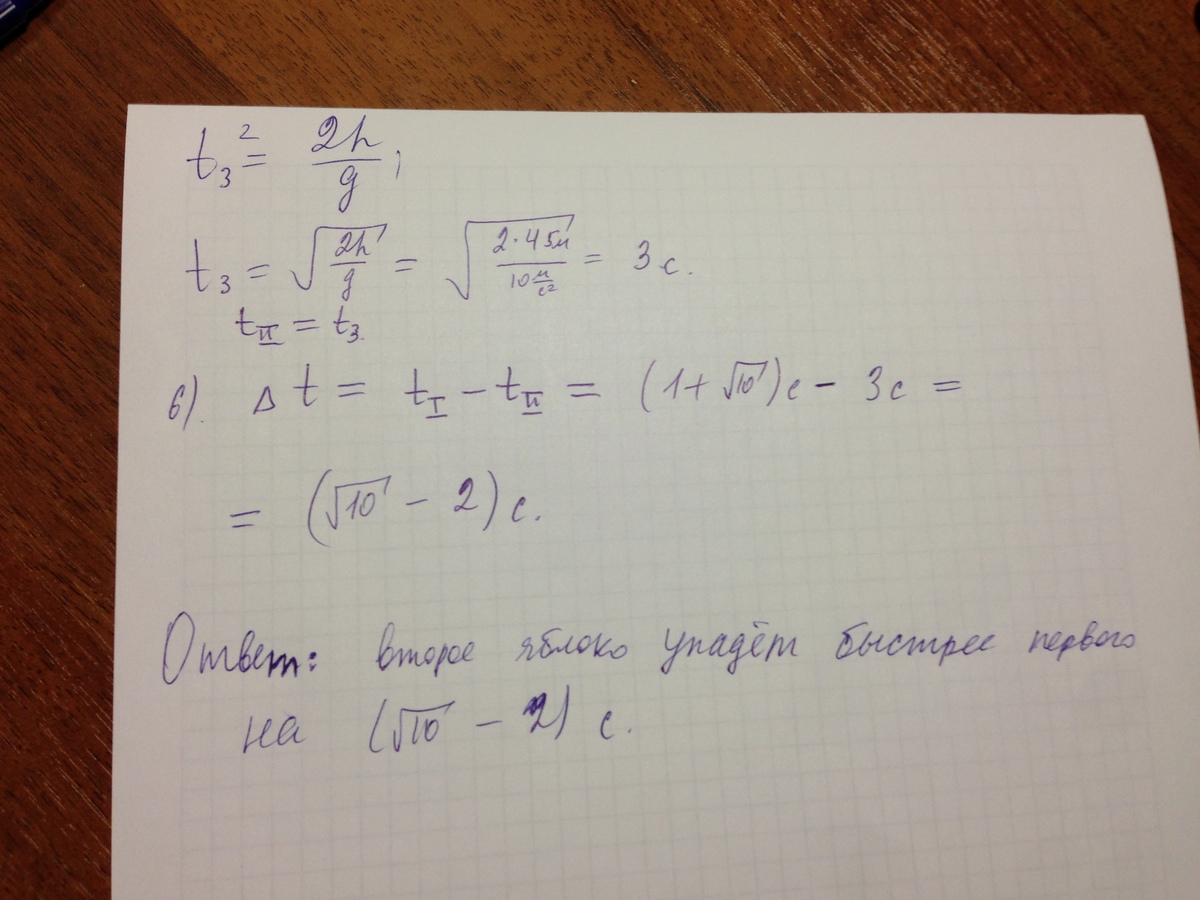 t₃² = 2h/g;
t₃ = √(2h/g) = √(2·45м/10 м/с²) = 3 с.
t_II = t₃.
6). Δ t = t_I − t_II = (1+√10)с − 3с =
= (√10 − 2) с.
Ответ: второе яблоко упадёт быстрее первого
на (√10 − 2) с.